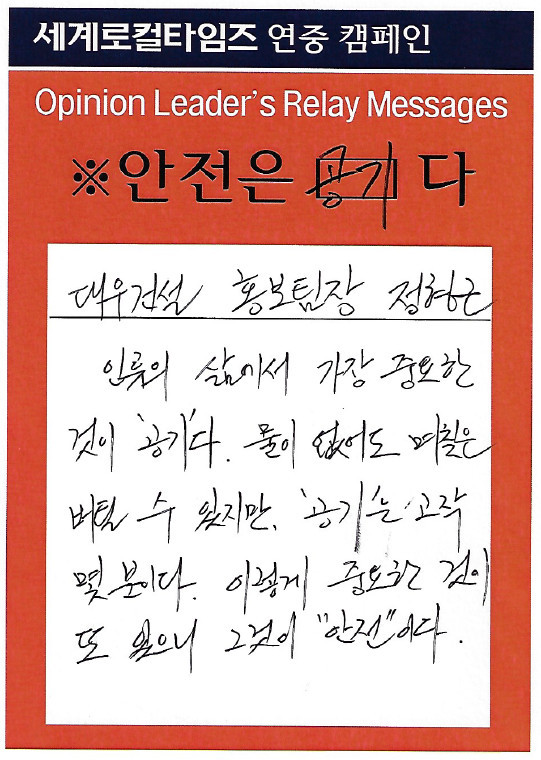 세계로컬타임즈 연중 캠페인
Opinion Leader's Relay Messages
※안전은 공기 다
대우건설 홍보팀장 정형근
인류의 삶에서 가장 중요한
것이 '공기'다. 물이 없어도 며칠은
버틸 수 있지만, '공기'는 고작
몇 분이다. 이렇게 중요한 것이
또 있으니 그것이 "안전"이다.